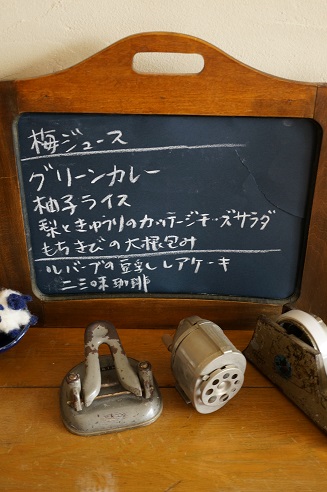 梅ジュース
グリーンカレー
柚子ライス
梨ときゅうりのカッテージチーズサラダ
もちきびの大根包み
ルバーブの豆乳レアケーキ
二三味珈琲